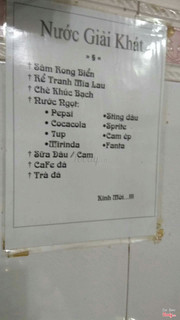 Nước Giải Khát
§
† Sâm Rong Biển
† Rể Tranh Mía Lau
† Chè Khúc Bạch
† Nước Ngọt:
• Pepsi
• Sting dâu
• Cocacola
• Sprite
• 7up
• Cam ép
• Mirinda
• Fanta
† Sữa Đậu / Cam
† CaFe đá
† Trà đá
Kính Mời...!!!